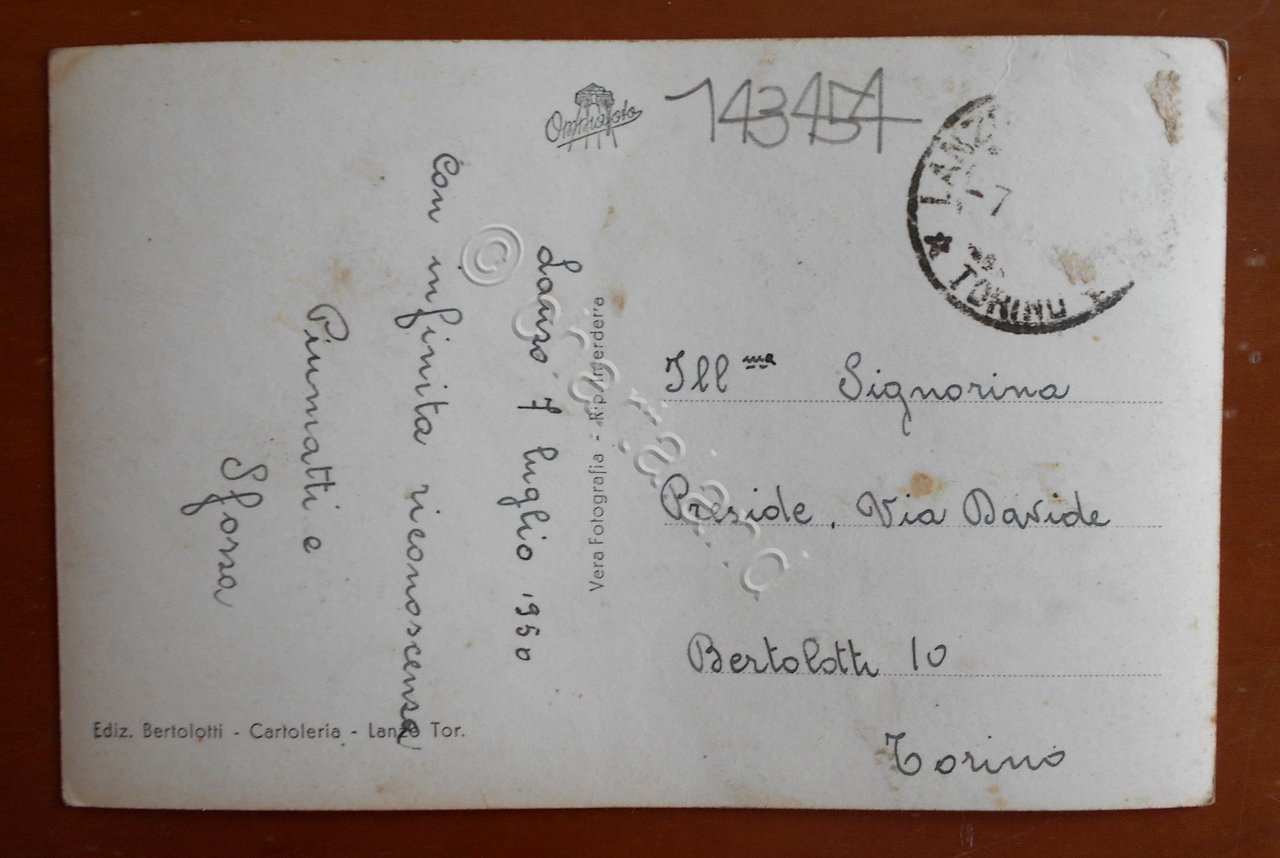 Omniafoto
143454
LANZO
-7
TORINO
Lanzo 7 luglio 1950
Con infinita riconoscenza
Piumatti e
Sforza
Vera Fotografia - Ripr. interdetta
Ill ma Signorina
Preside, Via Davide
Bertolotti 10
Torino
Ediz. Bertolotti - Cartoleria - Lanzo Tor.